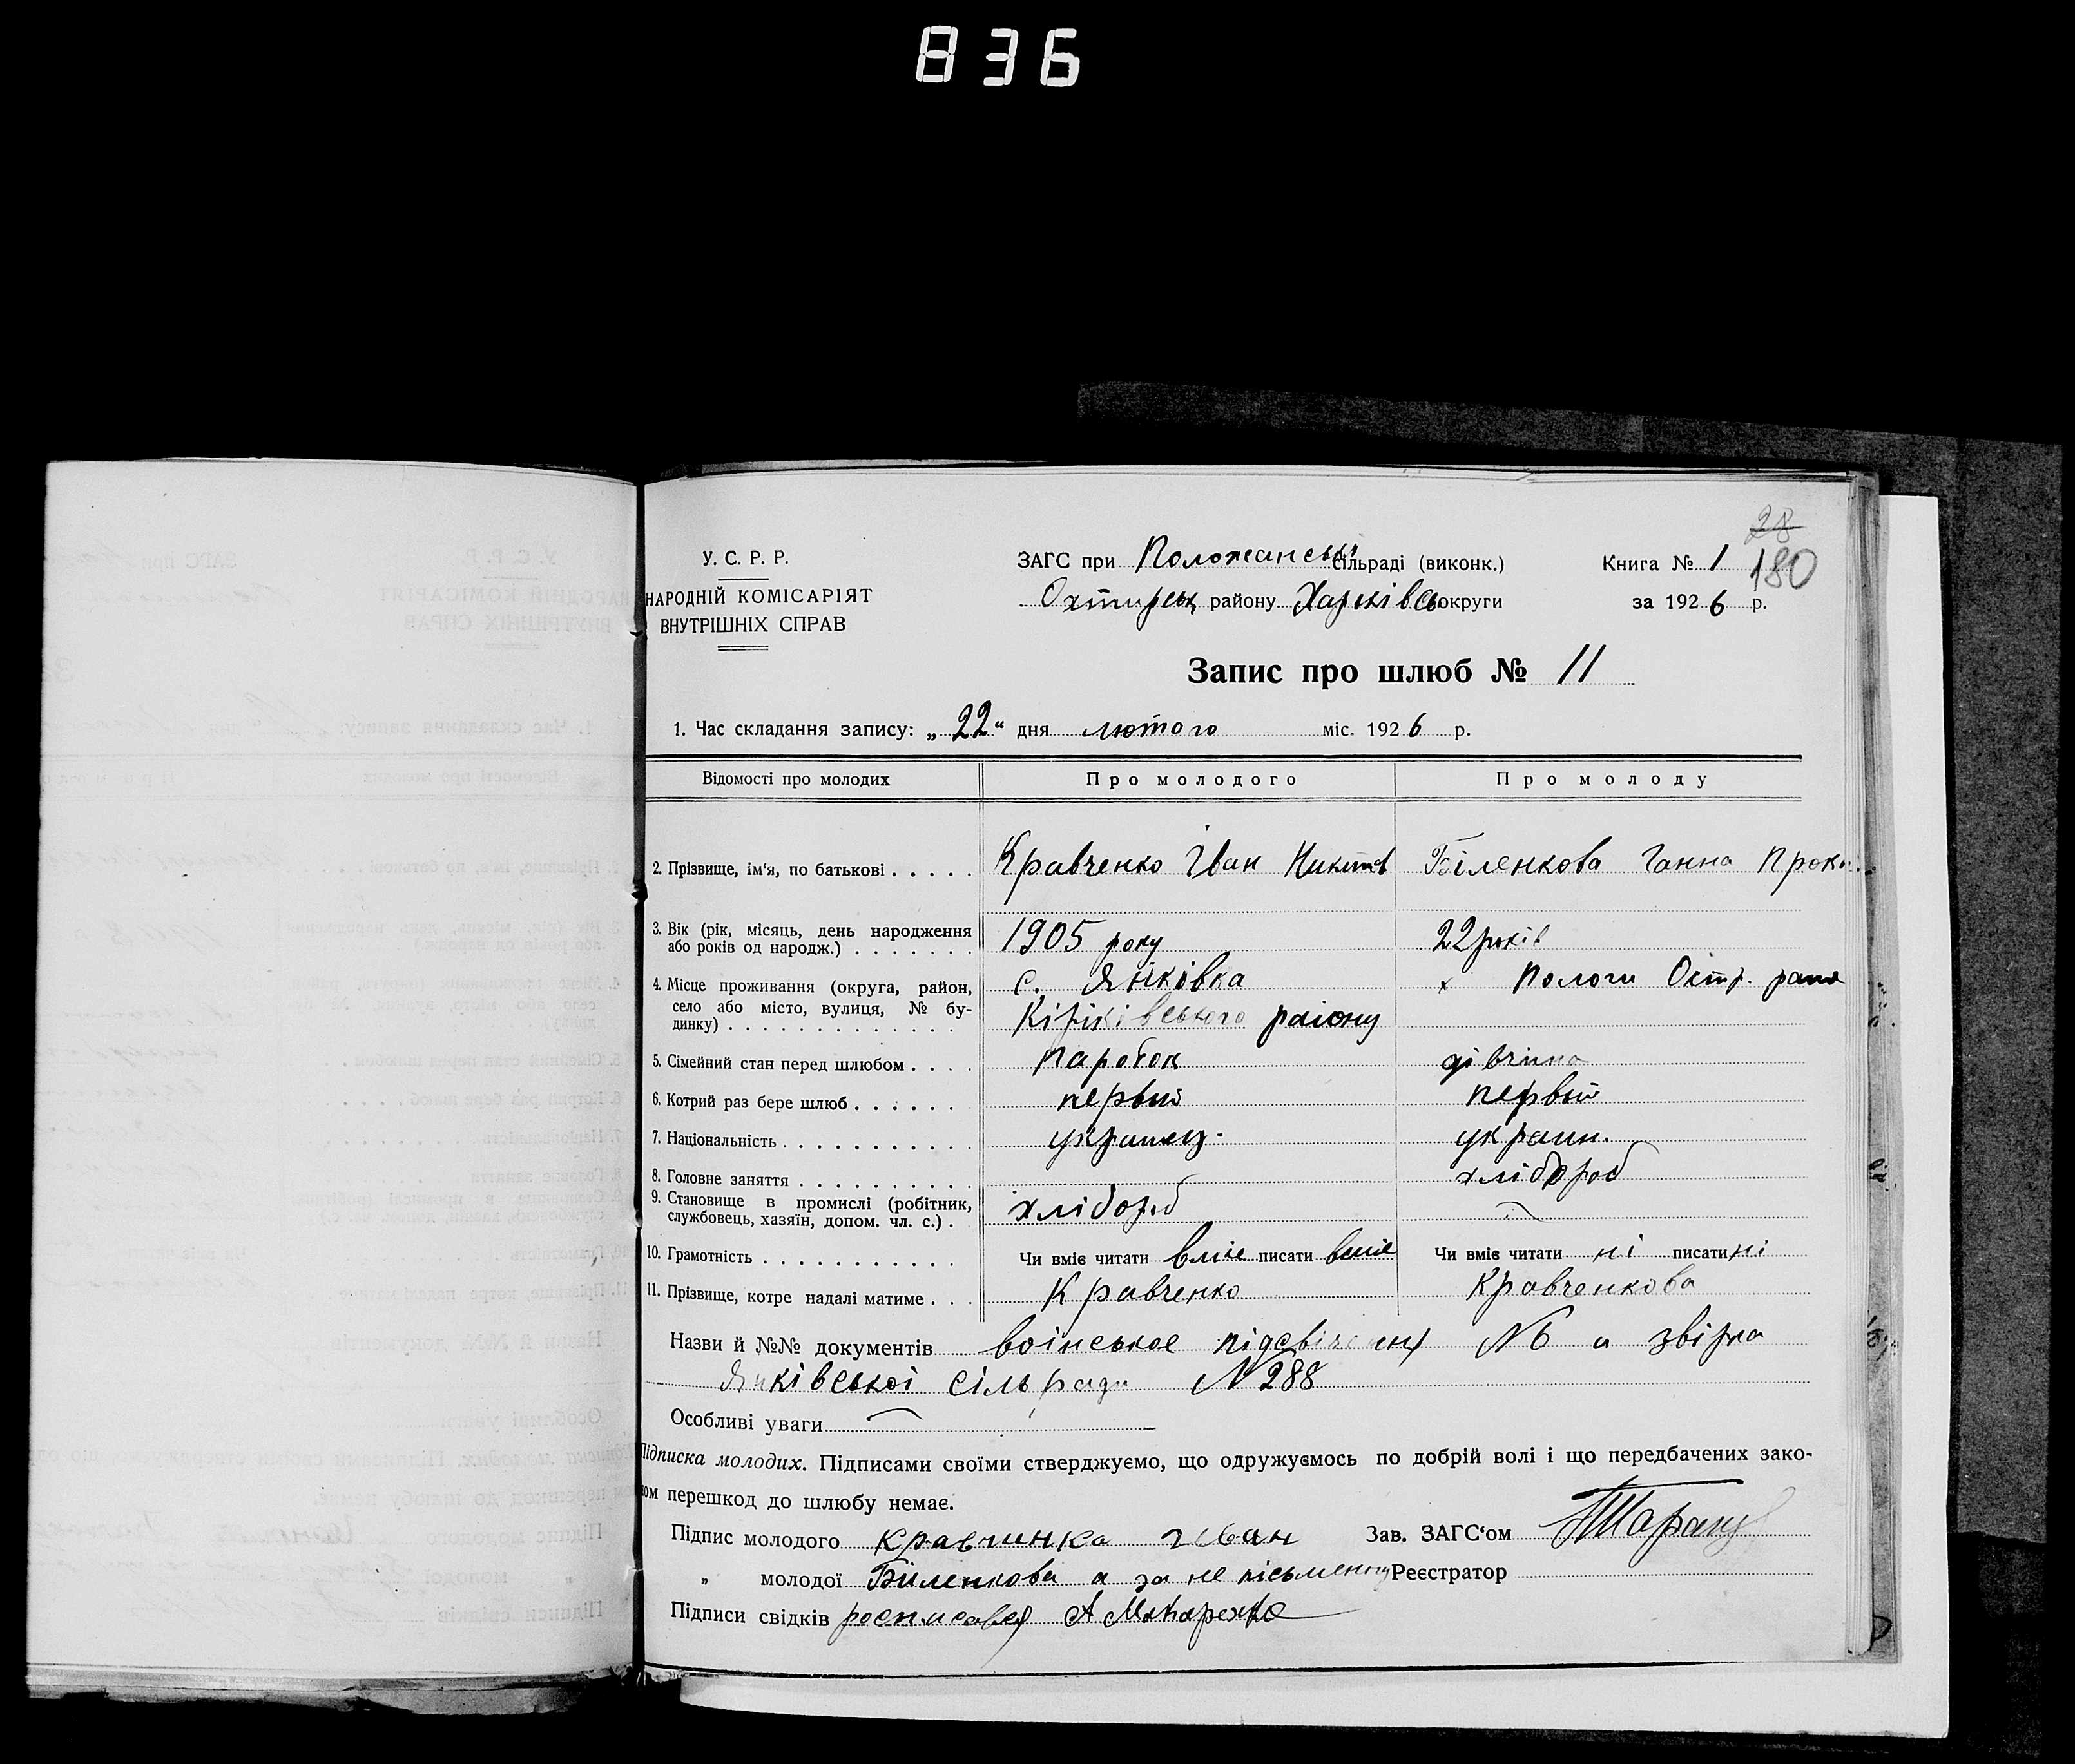 836
28
У. С. Р. Р.
НАРОДНІЙ КОМІСАРІЯТ
ВНУТРІШНІХ СПРАВ
ЗАГС при Положанські сільраді (виконк.)
Охтирськ району Харьківсь округи
Книга № 1 180
за 1926 р.
Запис про шлюб № 11
1. Час складання запису: „22“ дня лютого міс. 1926 р.
Відомості про молодих Про молодого Про молоду
2. Прізвище, ім'я, по батькові . . . . . Кравченко Іван Никитов Біленкова Ганна Прок
3. Вік (рік, місяць, день народження
або років од народж.) . . . . . . . 1905 року 22 років
4. Місце проживання (округа, район,
село або місто, вулиця, № бу-
динку) . . . . . . . . . . . . . . с. Янківка
Кіріківського раіону
х Пологи Охтр.
5. Сімейний стан перед шлюбом . . . . паробок дівчина
6. Котрий раз бере шлюб . . . . . . первий первой
7. Національність . . . . . . . . . . . украинец. украин.
8. Головне заняття . . . . . . . . . . . хлібороб
9. Становище в промислі (робітник,
службовець, хазяїн, допом. чл. с.) . хлібороб
10. Грамотність . . . . . . . . . . . Чи вміє читати вміє писати вміє Чи вміє читати ні писати ні
11. Прізвище, котре надалі матиме . . . Кравченко Кравченкова
Назви й №№ документів воінськое N6 и звірка
Янківськоі сільради N288
Особливі уваги
Підписка молодих. Підписами своїми стверджуємо, що одружуємось по добрій волі і що передбачених зако-
ном перешкод до шлюбу немає.
Підпис молодого кравчинка иван Зав. ЗАГС'ом
„ молодої Біленкова а за не письменну Реєстратор
Підписи свідків росписався А Макаренко